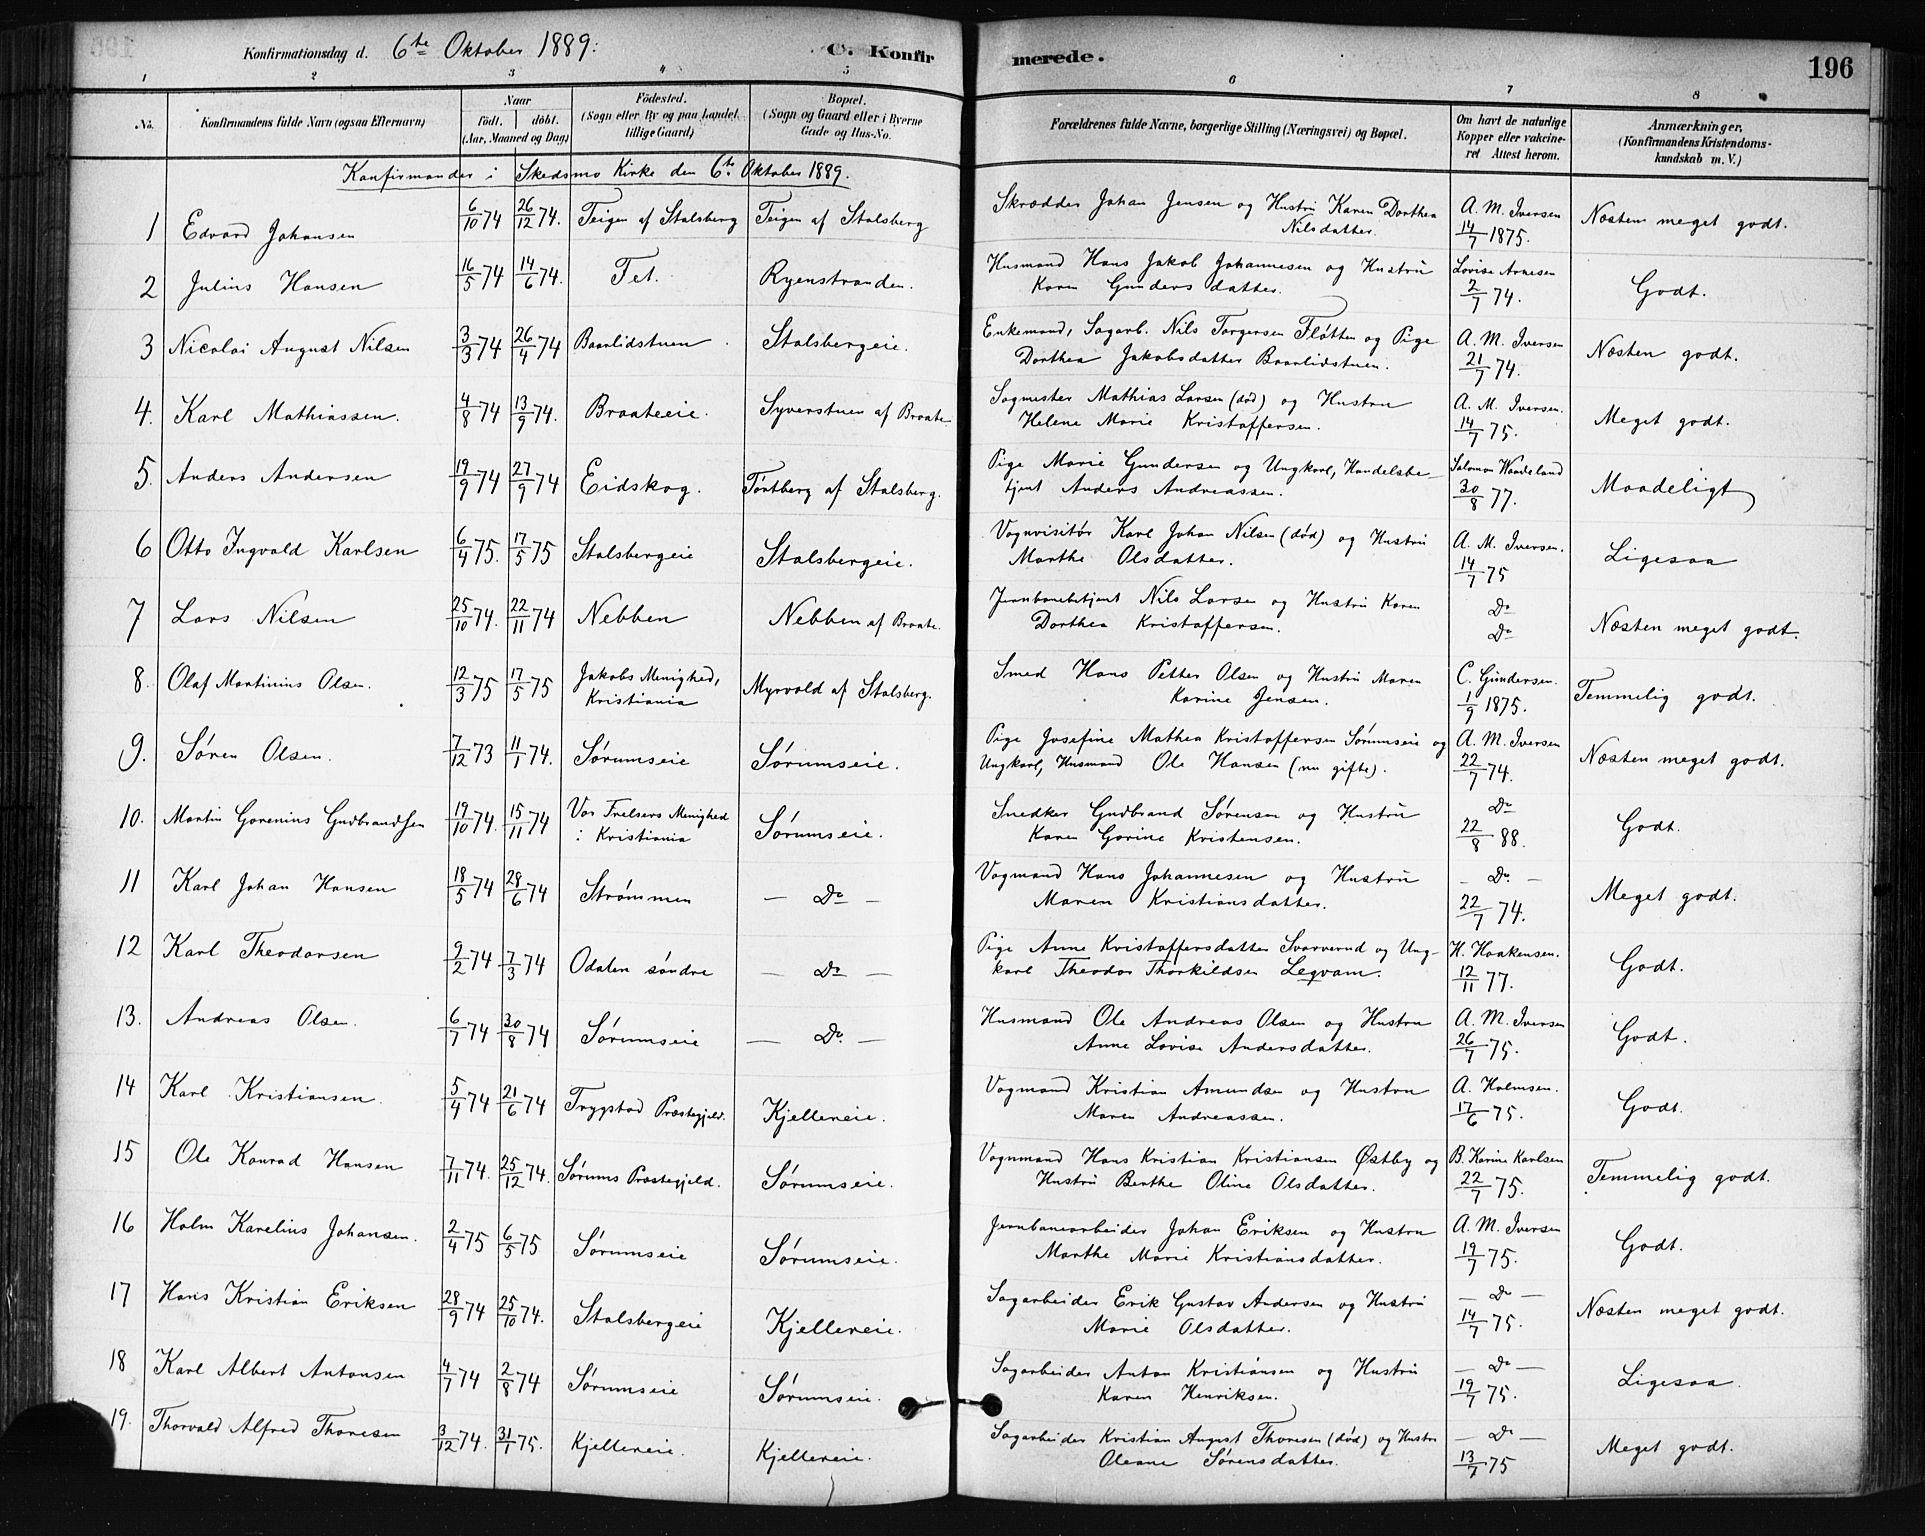 Konfirmationsdag d. 6te Oktober 1889.
C. Konfirmerede.
196
1 2 3 4 5 6 7 8
No. | Konfirmandens fulde Navn (ogsaa Efternavn) | Naar födt. döbt. (Aar, Maaned og Dag) | Födested. (Sogn eller By og paa Landet tillige Gaard) | Bopæl. (Sogn og Gaard eller i Byerne Gade og Hus-No. | Forældrenes fulde Navne, borgerlige Stilling (Næringsvei) og Bopæl. | Om havt de naturlige Kopper eller vakcineret Attest herom. | Anmærkninger, (Konfirmandens Kristendomskundskab m. V.)
Konfirmander i Skedsmo Kirke den 6te Oktober 1889.
1 Edvard Johansen | 6/10 74 | 26/12 74. | Teigen af Stalsberg | Teigen af Stalsberg | Skrædder Johan Jensen og Hustru Karen Dorthea Nilsdatter. | A. M. Iversen 14/7 1875. | Næsten meget godt.
2 Julius Hansen | 16/5 74 | 14/6 74. | Fet. | Ryenstranden. | Husmand Hans Jakob Johannesen og Hustru Karen Gundersdatter. | Lovise Arnesen 2/7 74. | Godt.
3 Nicolai August Nilsen | 3/3 74 | 26/4 74 | Baarlidstuen | Stalsbergeie. | Enkemand, Sagarb. Nils Torgersen Fløtten og Pige Dorthea Jakobsdatter Baarlidstuen. | A. M. Iversen 21/7 74. | Næsten godt.
4. Karl Mathiassen. | 4/8 74 | 13/9 74. | Braateeie. | Syverstuen af Braate | Sagmester Mathias Larsen (død) og Hustru Helene Marie Kristoffersen. | A. M. Iversen. 14/7 75. | Meget godt.
5. Anders Andersen | 19/9 74 | 27/9 74 | Eidskog. | Tørtberg af Stalsberg. | Pige Marie Gundersen og Ungkarl, Handelsbetjent Anders Andreassen. | Salomon Waadeland 30/8 77. | Maadeligt
6 Otto Ingvald Karlsen | 6/4 75. | 17/5 75 | Stalsbergeie | Stalsbergeie. | Vognvisitør Karl Johan Nilsen (død) og Hustru Marthe Olsdatter. | A. M. Iversen. 14/7 75 | Ligesaa
7 Lars Nilsen | 25/10 74. | 22/11 74 | Nebben | Nebben af Braate. | Jernbanebetjent Nils Larsen og Hustru Karen Dorthea Kristoffersen. | Do Do | Næsten meget godt.
8. Olaf Martinius Olsen. | 12/3 75 | 17/5 75 | Jakobs Menighed, Kristiania | Myrvold af Stalsberg. | Smed Hans Petter Olsen og Hustru Maren Karine Jensen. | C. Gundersen. 1/9 1875. | Temmelig godt.
9. Søren Olsen. | 7/12 73 | 11/1 74. | Sørumseie | Sørumseie. | Pige Josefine Mathea Kristoffersen Sørumseie og Ungkarl, Husmand Ole Hansen (nu gifte). | A. M. Iversen 22/7 74. | Næsten meget godt.
10. Martin Gorenius Gudbrandsen | 19/10 74. | 15/11 74 | Vor Frelsers Menighed i Kristiania | Sørumseie. | Snedker Gudbrand Sørensen og Hustru Karen Gorine Kristensen. | Do 22/8 88. | Godt.
11 Karl Johan Hansen | 18/5 74 | 28/6 74 | Strømmen | — Do — | Vogmand Hans Johannesen og Hustru Maren Kristiansdatter. | — Do. — 22/7 74. | Meget godt.
12 Karl Theodorsen | 9/2 74 | 7/3 74 | Odalen søndre | — Do — | Pige Anne Kristoffersdatter Svarverud og Ungkarl Theodor Thorkildsen Leqvam. | H. Haakensen. 12/11 77. | Godt.
13. Andreas Olsen. | 6/7 74 | 30/8 74 | Sørumseie | — Do. — | Husmand Ole Andreas Olsen og Hustru Anne Lovise Andersdatter. | A. M. Iversen 26/7 75. | Godt.
14 Karl Kristiansen. | 5/4 74 | 21/6 74 | Trygstad Præstegjeld. | Kjellereie. | Vogmand Kristian Amundsen og Hustru Maren Andreassen. | A. Holmsen. 17/6 75. | Godt.
15 Ole Konrad Hansen | 7/11 74. | 25/12 74. | Sørums Præstegjeld. | Sørumseie. | Vognmand Hans Kristian Kristiansen Østby og Hustru Berthe Oline Olsdatter. | B. Karine Karlsen 22/7 75. | Temmelig godt.
16 Holm Karelius Johansen. | 2/4 75 | 6/5 75 | Sørumseie | Sørumseie. | Jernbanearbeider Johan Eriksen og Hustru Marthe Marie Kristiansdatter. | A. M. Iversen 19/7 75. | Godt.
17 Hans Kristian Eriksen | 28/9 74 | 25/10 74. | Stalsbergeie | Kjellereie. | Sagarbeider Erik Gustav Andersen og Hustru Marie Olsdatter. | — Do — 14/7 75. | Næsten meget godt.
18 Karl Albert Antonsen | 4/7 74 | 2/8 74 | Sørumseie | Sørumseie. | Sagarbeider Anton Kristiansen og Hustru Karen Henriksen. | — Do — 19/7 75. | Ligesaa.
19. Thorvald Alfred Thoresen | 3/12 74. | 31/1 75. | Kjellereie. | Kjellereie. | Sagarbeider Kristian August Thoresen (død) og Hustru Oleane Sørensdatter. | — Do — 13/7 75 | Meget godt.